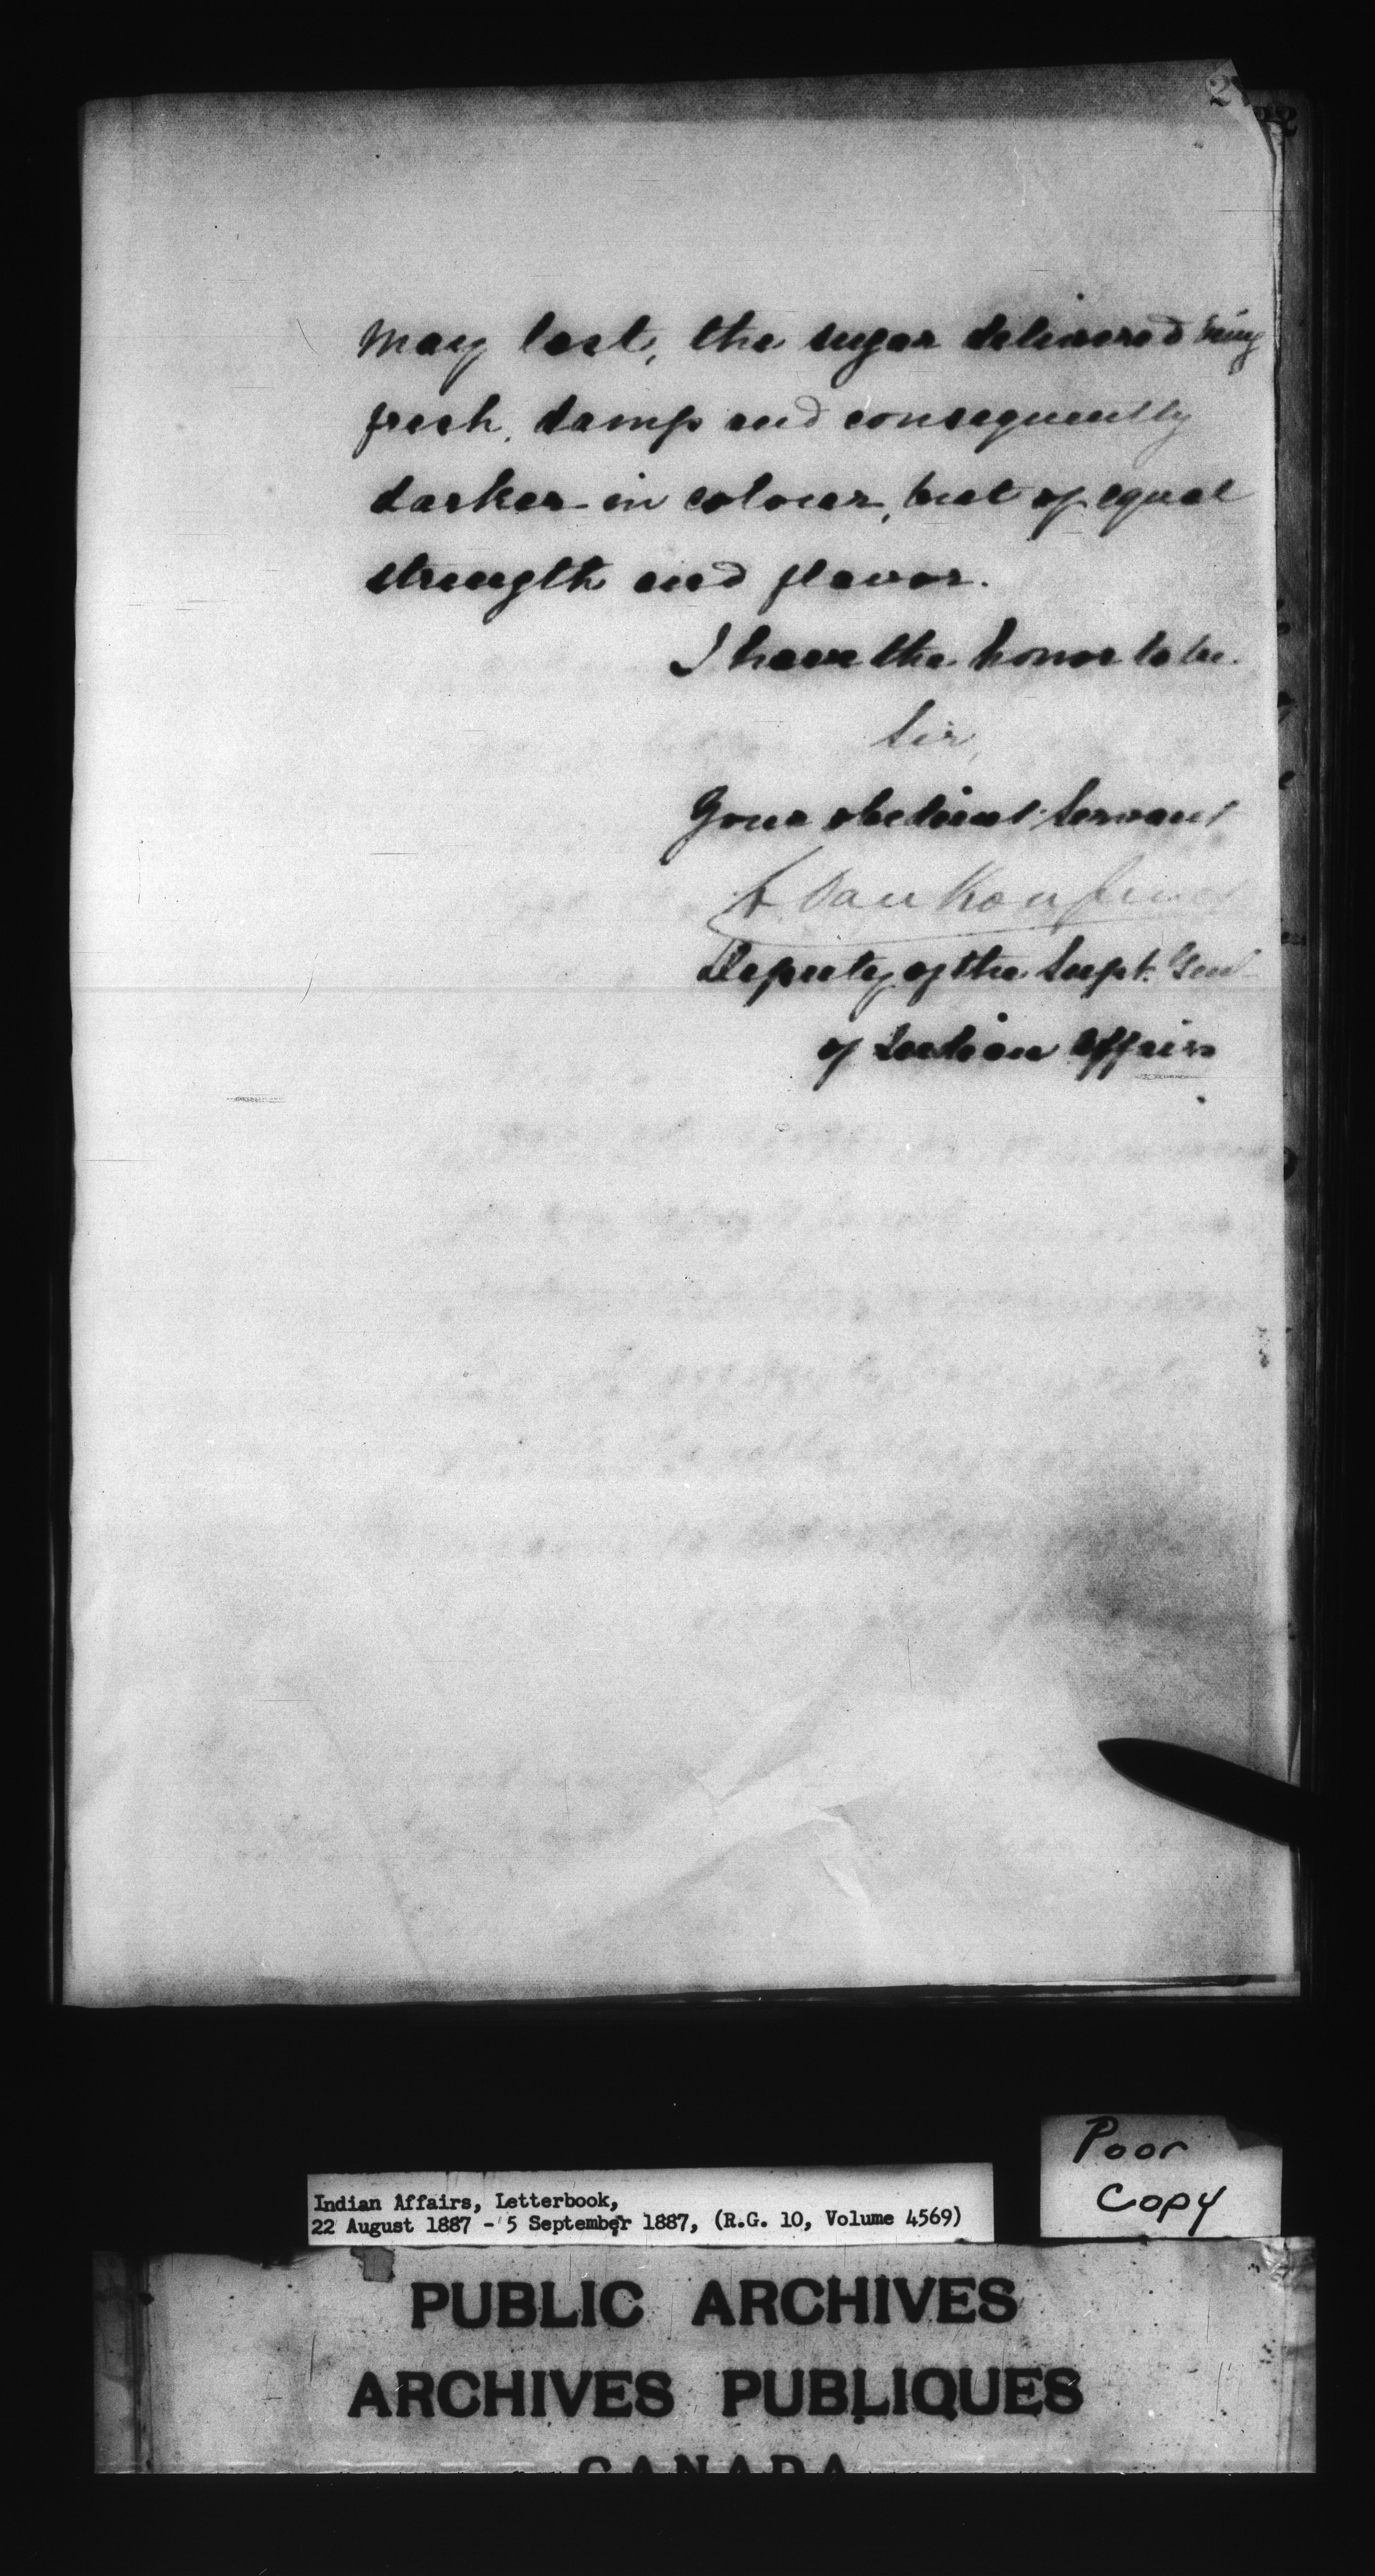 May last, the sugar delivered being
fresh, damp and consequently
darker in colour, but of equal
strength and flavor.
I have the honor to be.
Sir,
Your obedient Servant
L Van Koughnet
Deputy of the Supt. Genl
of Indian Affairs
Poor
Copy
Indian Affairs, Letterbook,
22 August 1887 - 5 September 1887, (R.G. 10, Volume 4569)
PUBLIC ARCHIVES
ARCHIVES PUBLIQUES
CANADA